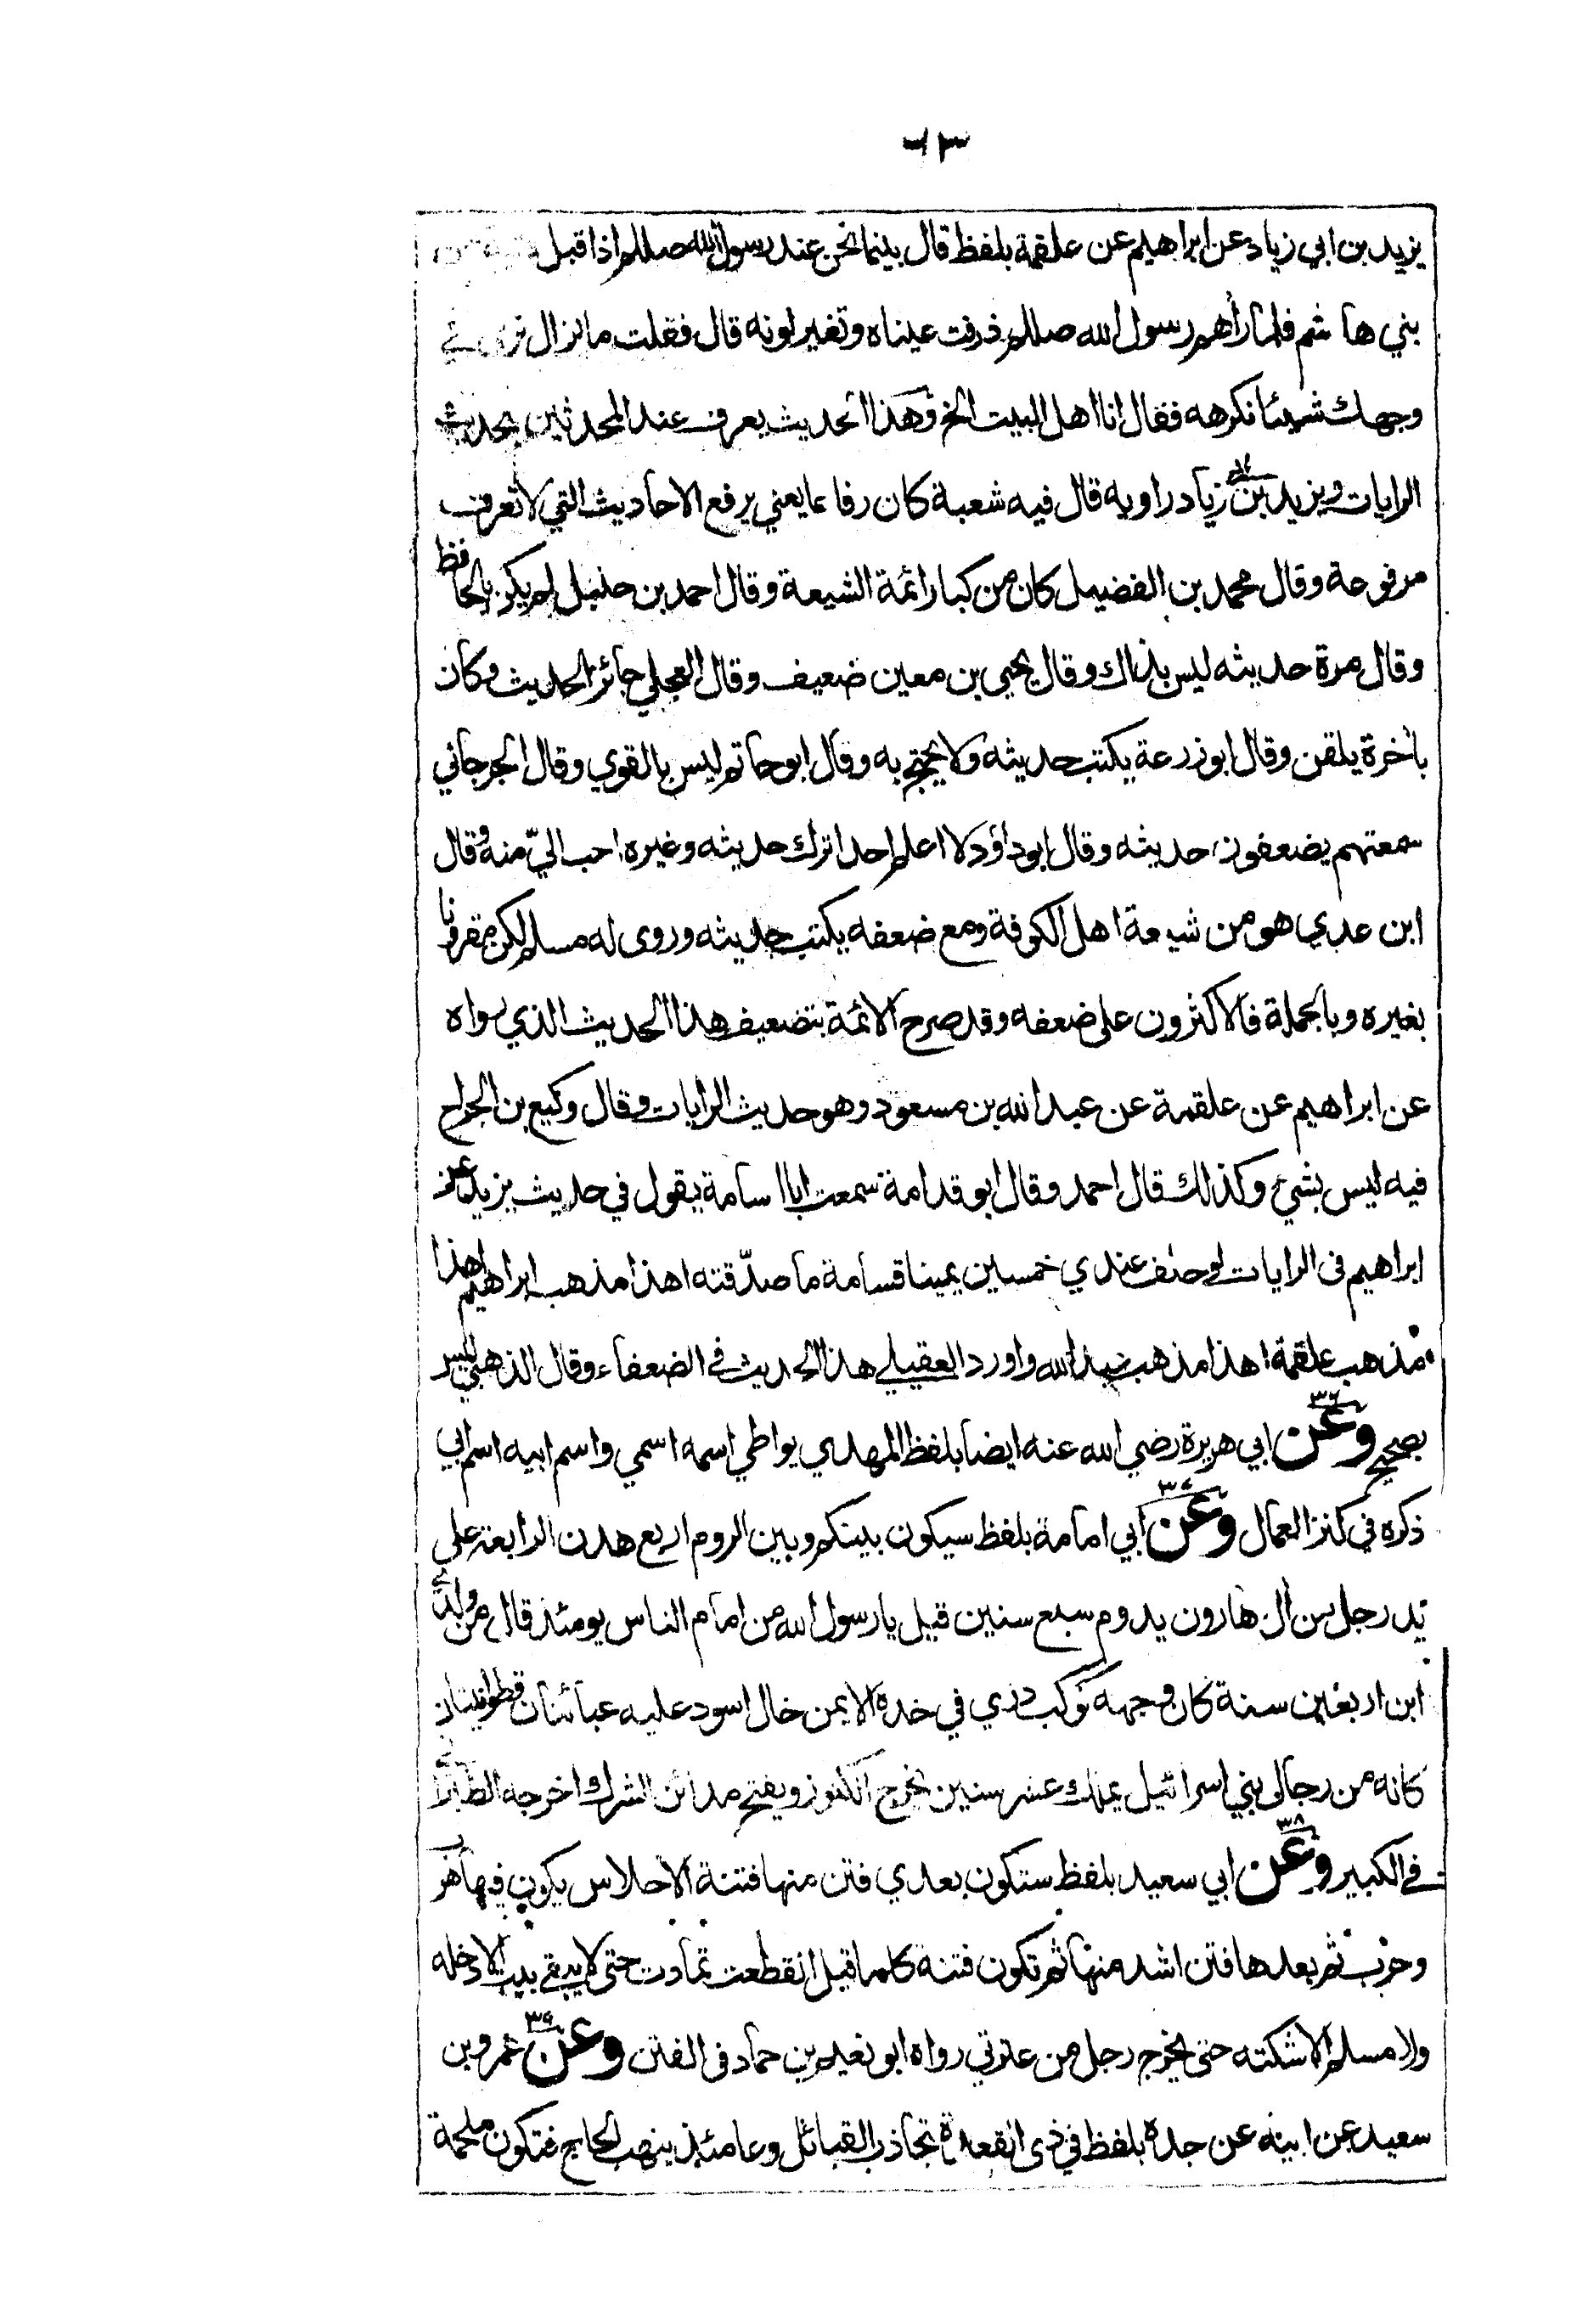 ٦٣
يزيد بن ابي زياد عن ابراهيم عن علقمة بلفظ قال بينما نحن عند رسول الله صللم اذا قبل
بني هاشم فلما رأهم رسول الله صللم ذرفت عيناه وتغير لونه قال فقلت ما نزال نرى في
وجهك شيئا نكرهه فقال انا اهل البيت الخ وهذا الحديث يعرف عند المحدثين بحديث
الرايات ويزيد بن زياد راويه قال فيه شعبة كان رفاعا يعني يرفع الاحاديث التي لا تعرف
مرفوعة وقال محمد بن الفضيل كان من كبار ائمة الشيعة وقال احمد بن حنبل لم يكن بالحافظ
وقال مرة حديثه ليس بذاك وقال يحيى بن معين ضعيف وقال العجلي جائز الحديث وكان
بأخرة يلقن وقال ابو زرعة يكتب حديثه ولا يحتج به وقال ابو حاتم ليس بالقوي وقال الجرجاني
سمعتهم يضعفون حديثه وقال ابو داؤد لا اعلم احدا ترك حديثه وغيره احب اليّ منه وقال
ابن عدي هو من شيعة اهل الكوفة ومع ضعفه يكتب حديثه وروى له مسلم لكن مقرونا
بغيره وبالجملة فالاكثرون على ضعفه وقد صرح الائمة بتضعيف هذا الحديث الذي رواه
عن ابراهيم عن علقمة عن عبد الله بن مسعود وهو حديث الرايات وقال وكيع بن الجراح
فيه ليس بشيء وكذلك قال احمد وقال ابو قدامة سمعت ابا اسامة يقول في حديث يزيد عن
ابراهيم فى الرايات لو حلف عندي خمسين يمينا قسامة ما صدّقته اهذا مذهب ابراهيم اهذا
مذهب علقمة اهذا مذهب عبد الله واورد العقيلي هذا الحديث في الضعفاء وقال الذهبي ليس
بصحيح وعن ٣٦ ابي هريرة رضي الله عنه ايضا بلفظ المهدي يواطي اسمه اسمي واسم ابيه اسم ابي
ذكره في كنز العمال وعن ٣٧ ابي امامة بلفظ سيكون بينكم وبين الروم اربع هدن الرابعة على
يد رجل من ال هارون يدوم سبع سنين قيل يا رسول الله من امام الناس يومئذ قال من ولدي
ابن اربعين سنة كان وجهه كوكب دري في خده الايمن خال اسود عليه عبائتان قطوانيتان
كانه من رجال بني اسرائيل يملك عشر سنين يخرج الكنوز ويفتح مدائن الشرك اخرجه الطبراني
في الكبير وعن ٣٨ ابي سعيد بلفظ ستكون بعدي فتن منها فتنة الاحلاس يكون فيها هرب
وحرب ثم بعدها فتن اشد منها ثم تكون فتنة كلما قيل انقطعت تمادت حتى لا يبقى بيت الا دخله
ولا مسلم الا شكته حتى يخرج رجل من عترتي رواه ابو نعيم بن حماد فى الفتن وعن ٣٩ عمرو بن
سعيد عن ابيه عن جده بلفظ في ذى القعدة تجاذب القبائل وعامئذ ينهب الحاج فتكون ملحمة